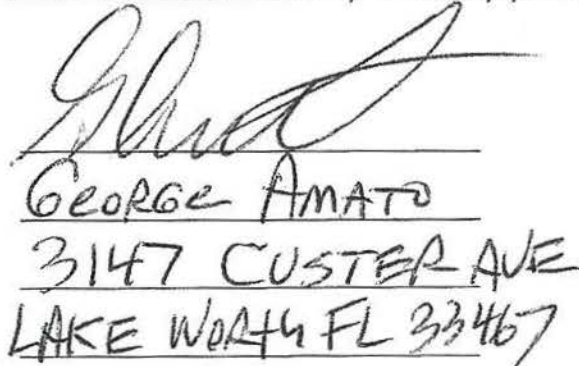 GEORGE AMATO
3147 CUSTER AVE
LAKE WORTH FL 33467